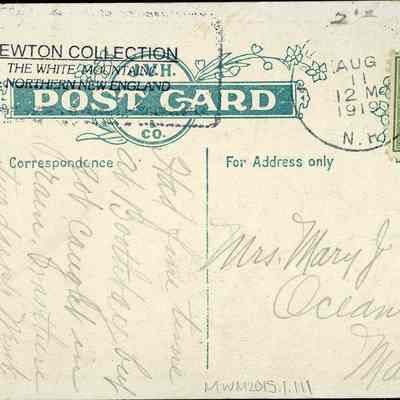 EWTON COLLECTION
THE WHITE MOUNTAINS
NORTHERN NEW ENGLAND
2
J.V.H.
POST CARD
& CO.
AUG
11
12 M
1910
N.H.
Correspondence
For Address only
Had fine time
at Boothbay but
got caught in
rain,
Mrs. Mary J
Ocean
Ma
MWM2015.1.111